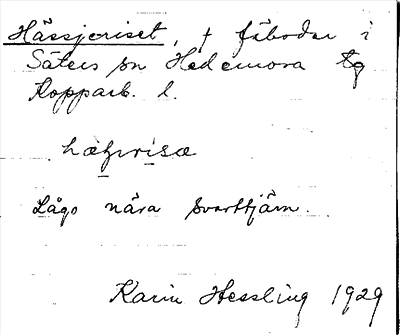 Hässjeriset, † fäbodar i
Säters sn Hedemora tg
Kopparb. l.
Lågo nära Svarttjärn.
Karin Hessling 1929